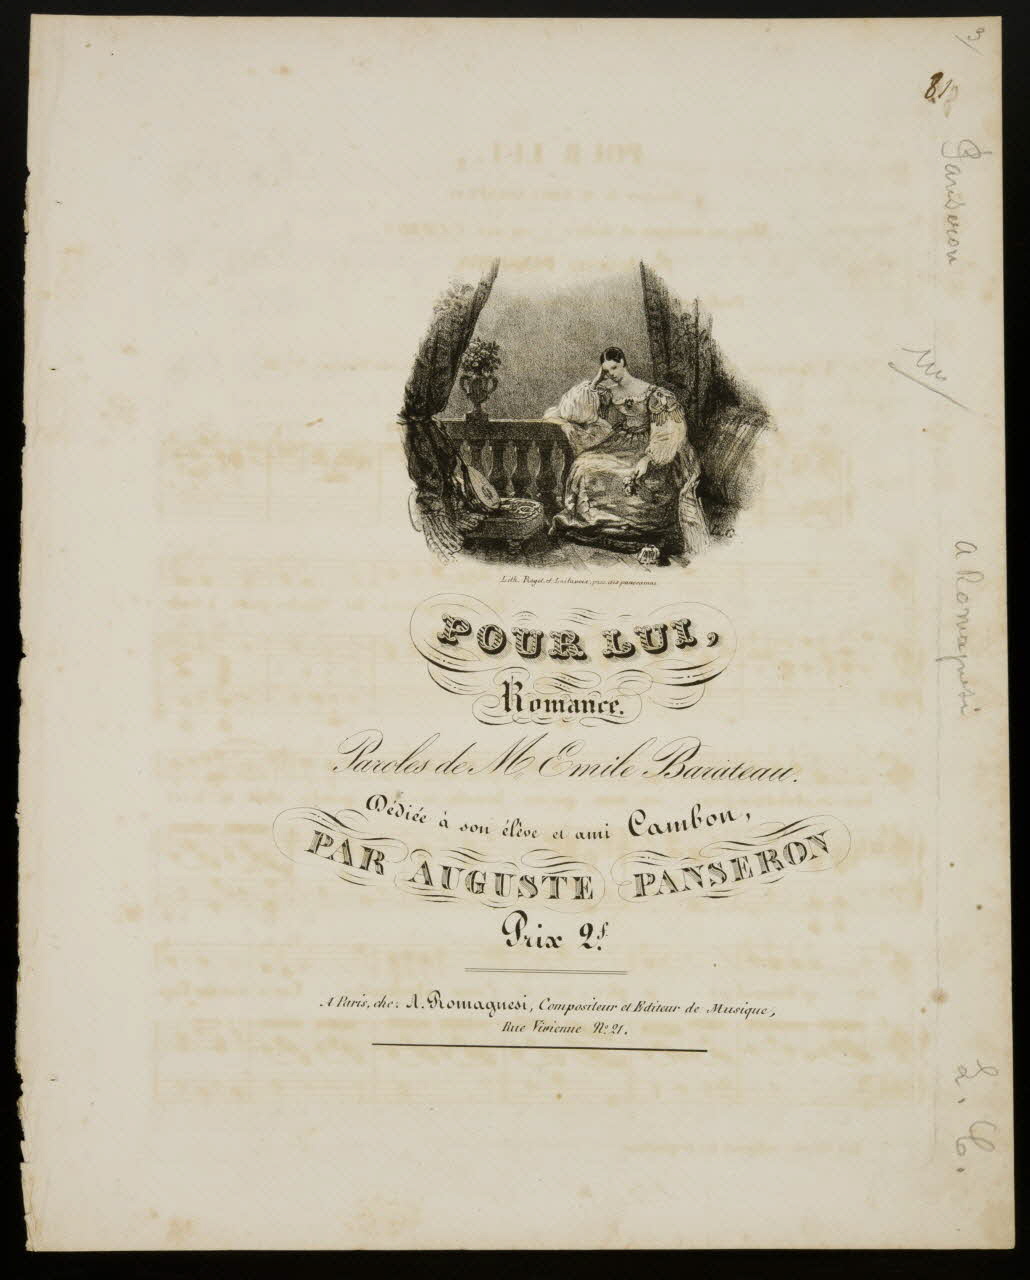 81
Panseron
A Romagnesi
Lith. Roget et
POUR LUI,
Romance.
Paroles de Mr Emile Barateau.
Dédiée à son élève et ami Cambon,
PAR AUGUSTE PANSERON
Prix 2f.
A Paris, chez A. Romagnesi, Compositeur et Editeur de Musique,
Rue Vivienne No. 21.